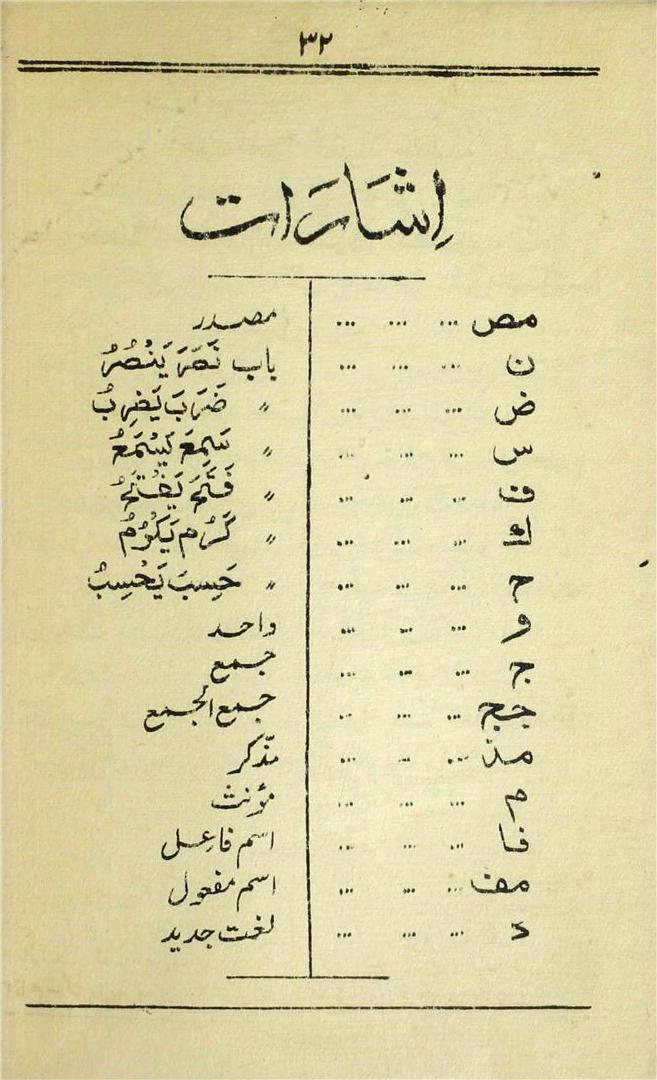 ۳۲
اِشَارَات
مص ... ... ... مصدر
ن ... ... ... باب نَصَرَ يَنْصُرُ
ض ... ... ... 〃 ضَرَبَ يَضْرِبُ
س ... ... ... 〃 سَمِعَ يَسْمَعُ
ف ... ... ... 〃 فَتَحَ يَفْتَحُ
ك ... ... ... 〃 كَرُمَ يَكْرُمُ
ح ... ... ... 〃 حَسِبَ يَحْسِبُ
و ... ... ... واحد
ج ... ... ... جمع
جج ... ... ... جمع الجمع
مذ ... ... ... مذّکر
م ... ... ... مؤنث
فا ... ... ... اسم فاعل
مف ... ... ... اسم مفعول
د ... ... ... لغت جدید